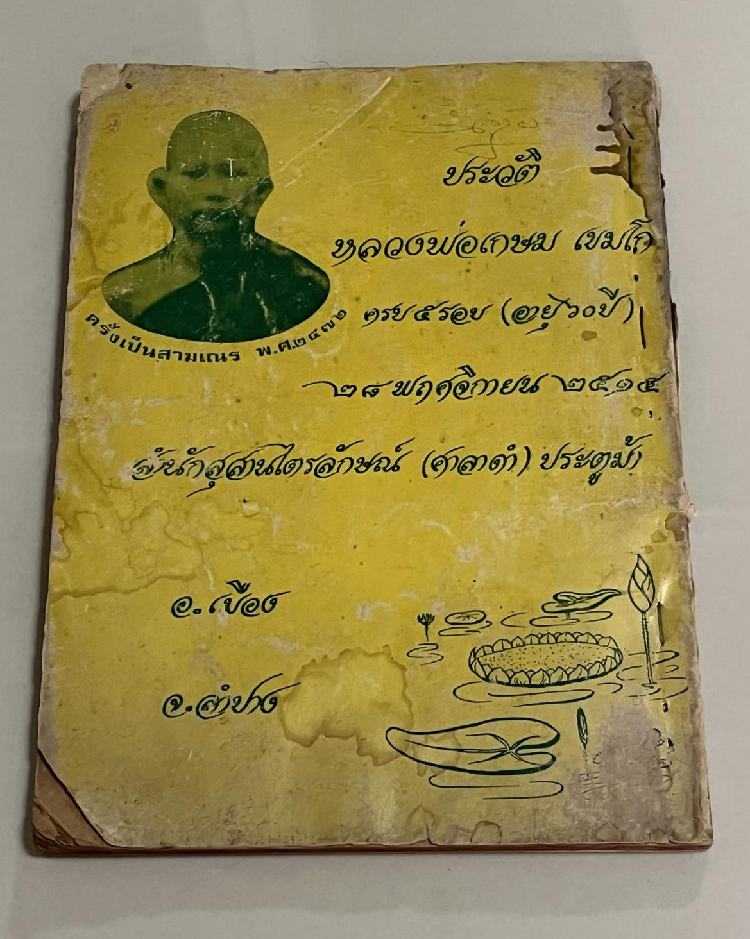 ประวัติ
หลวงพ่อเกษม เขมโก
ครบ ๕ รอบ (อายุ ๖๐ ปี)
ครั้งเป็นสามเณร พ.ศ.๒๔๗๒
๒๘ พฤศจิกายน ๒๕๑๔
สำนักสุสานไตรลักษณ์ (ศาลาดำ) ประตูม้า
อ.เมือง
จ.ลำปาง